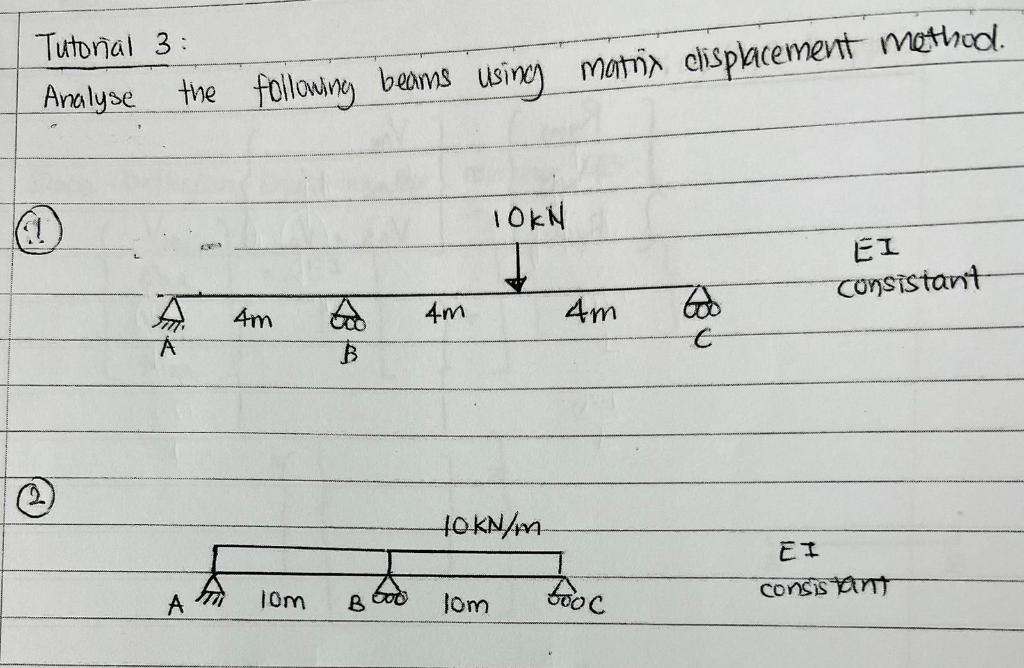 Tutorial 3:
Analyse the following beams using matrix displacement method.
1
10kN
EI
consistant
4m
4m
4m
A
B
C
2
10KN/m
EI
consistant
A
10m
B
10m
C